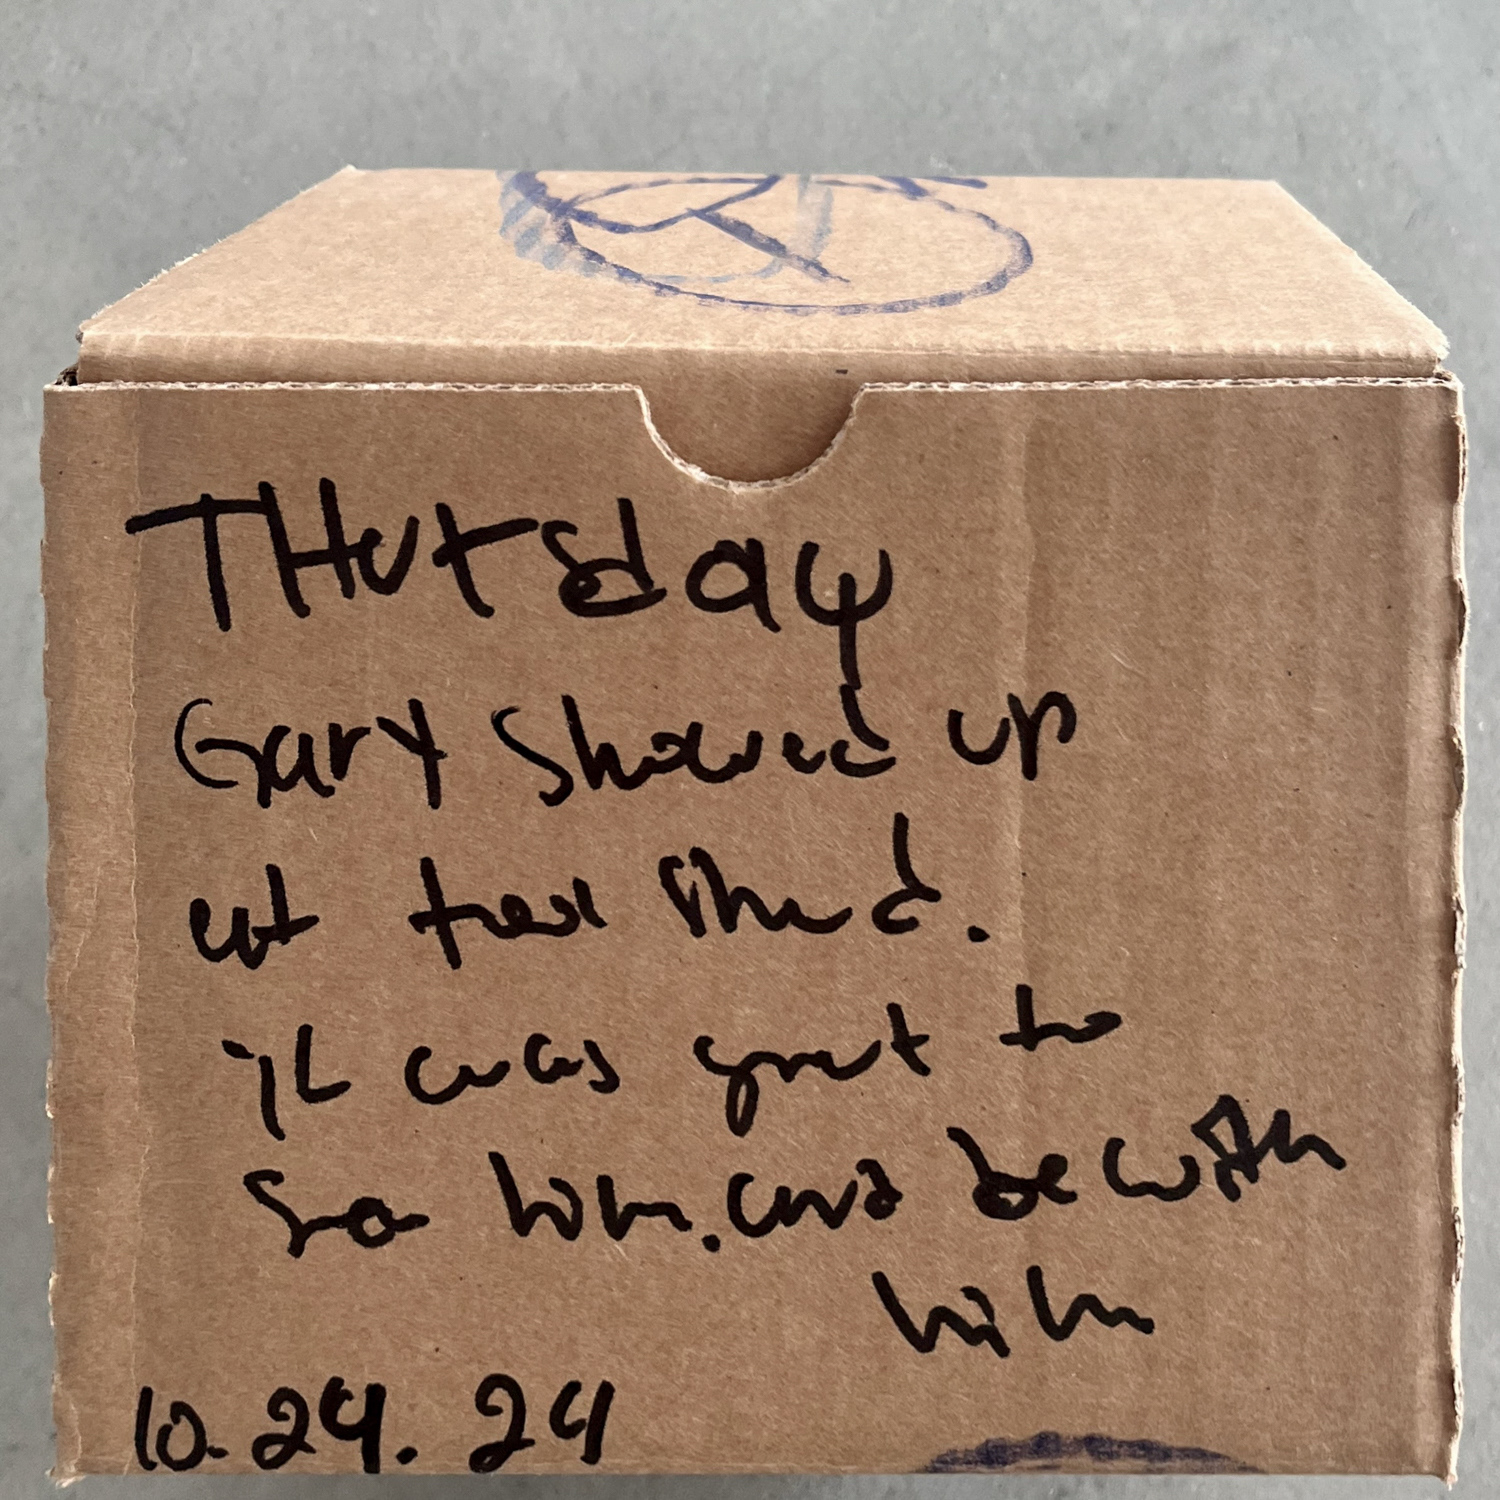 THursday
Gary showed up
at the shed.
it was great to
see him. and be with
him
10.24.24